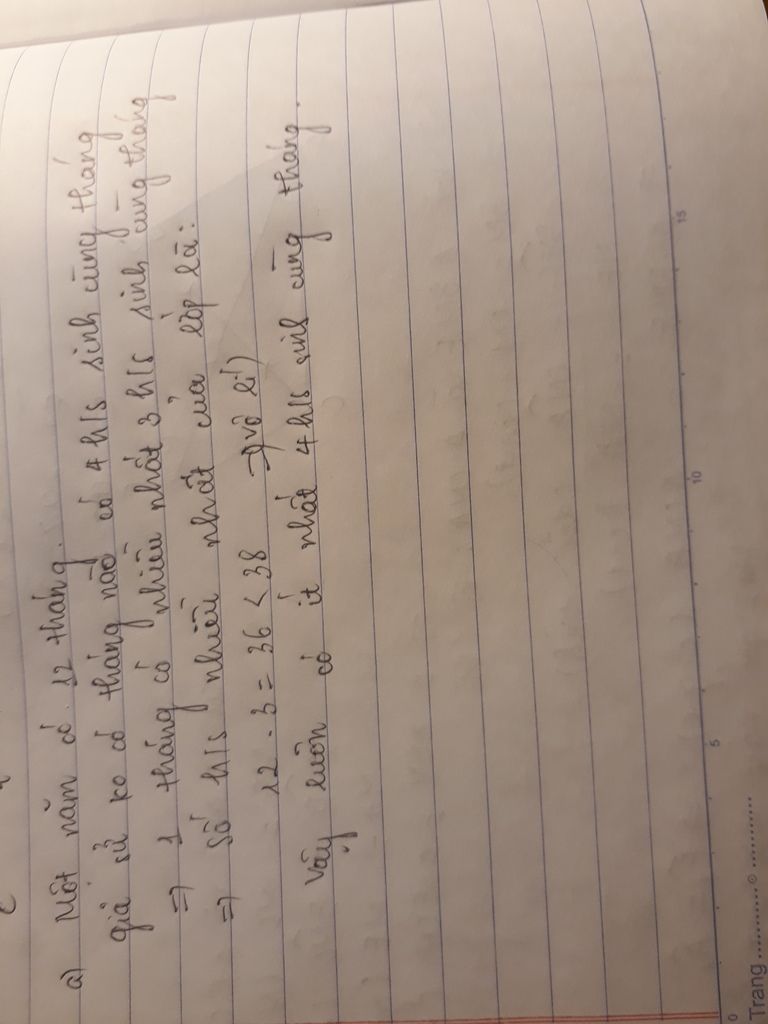 a) Một năm có 12 tháng.
giả sử ko có tháng nào có 4 h/s sinh cùng tháng
=> 1 tháng có nhiều nhất 3 h/s sinh cùng tháng
=> số h/s nhiều nhất của lớp là:
12 . 3 = 36 < 38 => (vô lí)
Vậy luôn có ít nhất 4 h/s sinh cùng tháng.
0 5 10 15
Trang